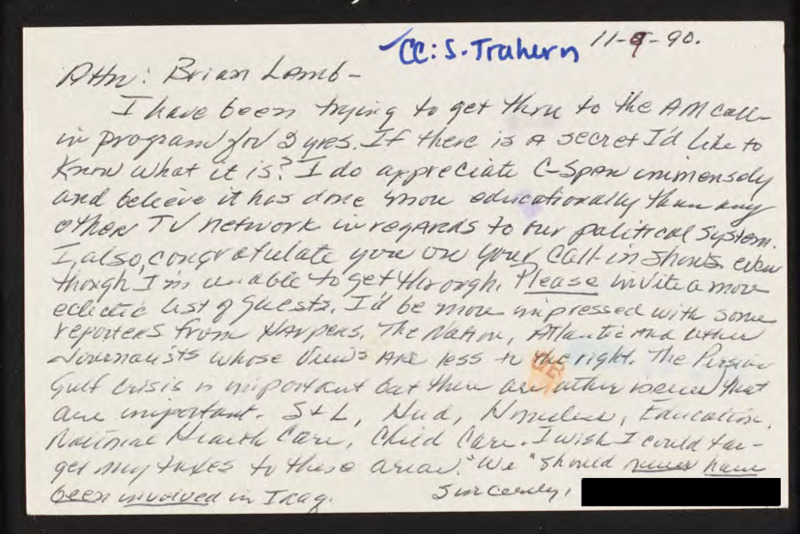 CC: S. Trahern 11-9-90.
Attn: Brian Lamb -
I have been trying to get thru to the AM call-
in program for 3 yrs. If there is a secret I'd like to
know what it is? I do appreciate C-Span immensely
and believe it has done more educationally than any
other TV network in regards to our political system.
I, also, congratulate you on your call-in shows even
though I'm unable to get through. Please invite a more
eclectic list of guests. I'd be more impressed with some
reporters from Harpers, The Nation, Atlantic and other
Journalists whose views are less to the right. The Persian
Gulf Crisis is important but there are other issues that
are important. S&L, Hud, Homeless, Education,
National Health Care, Child Care. I wish I could tar-
get my taxes to these areas. "We" should never have
been involved in Iraq.
Sincerely,